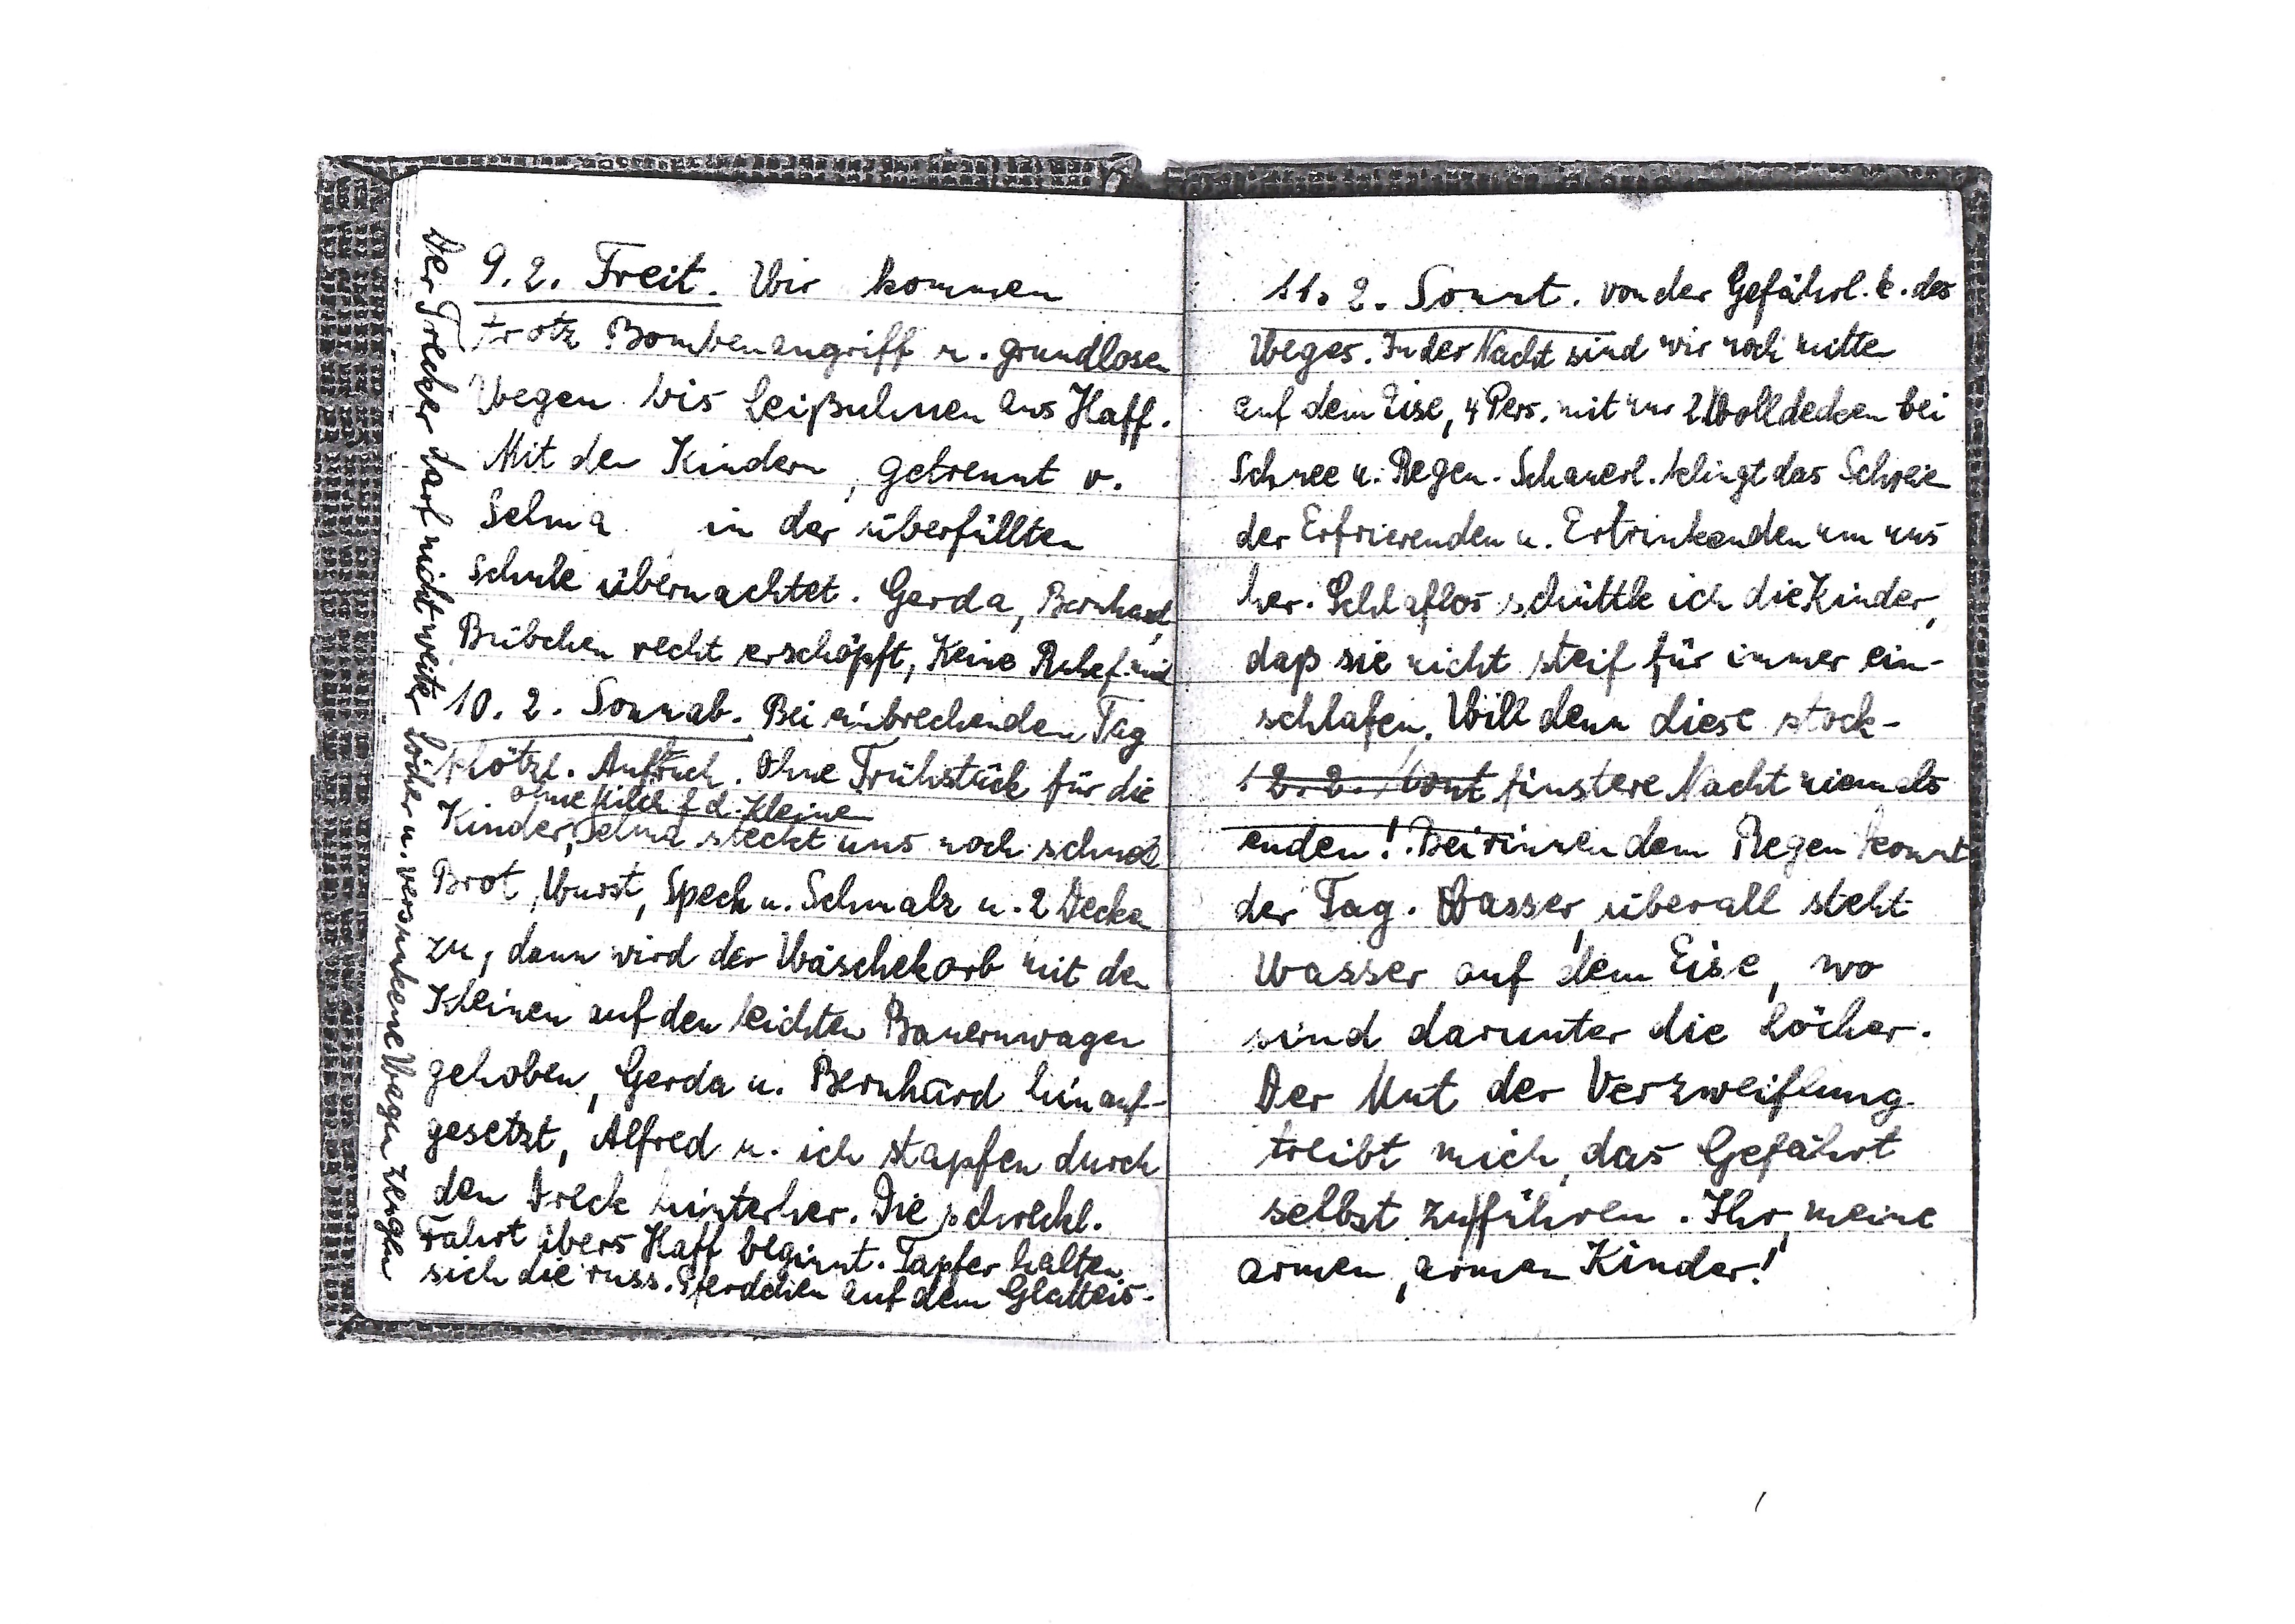 9.2. Freit. Wir kommen
trotz Bombenangriff u. grundlosen
Wegen bis Leißuhnen ans Haff.
Mit den Kindern, getrennt v.
Selma in der überfüllten
Schule übernachtet. Gerda, Bernhard,
Bübchen recht erschöpft, Keine Ruhe f. mich
10.2. Sonnab. Bei einbrechenden Tag
plötzl. Aufbruch. Ohne Frühstück für die
ohne Milch f. d. Kleine
Kinder, Selma steckt uns noch schnell
Brot, Wurst, Speck u. Schmalz u. 2 Decken
zu, dann wird der Wäschekorb mit den
Kleinen auf den leichten Bauernwagen
gehoben, Gerda u. Bernhard hinauf-
gesetzt, Alfred u. ich stapfen durch
den Dreck hinterher. Die schreckl.
Fahrt übers Haff beginnt. Tapfer halten
sich die russ. Pferdchen auf dem Glatteis.
Der Trecker darf nicht weiter Löcher u. versunkene Wagen zeugen
11.2. Sonnt. von der Gefährl.k. des
Weges. In der Nacht sind wir noch mitten
auf dem Eise, 4 Pers. mit nur 2 Wolldecken bei
Schnee u. Regen. Schauerl. klingt das Schreien
der Erfrierenden u. Ertrinkenden um uns
her. Schlaflos schüttle ich die Kinder,
daß sie nicht steif für immer ein-
schlafen. Will denn diese stock-
12.2. Mont finstere Nacht niemals
enden! Bei rinnendem Regen kommt
der Tag. Wasser, überall steht
Wasser auf dem Eise, wo
sind darunter die Löcher.
Der Mut der Verzweiflung
treibt mich, das Gefährt
selbst zu führen. Ihr, meine
armen, armen Kinder!